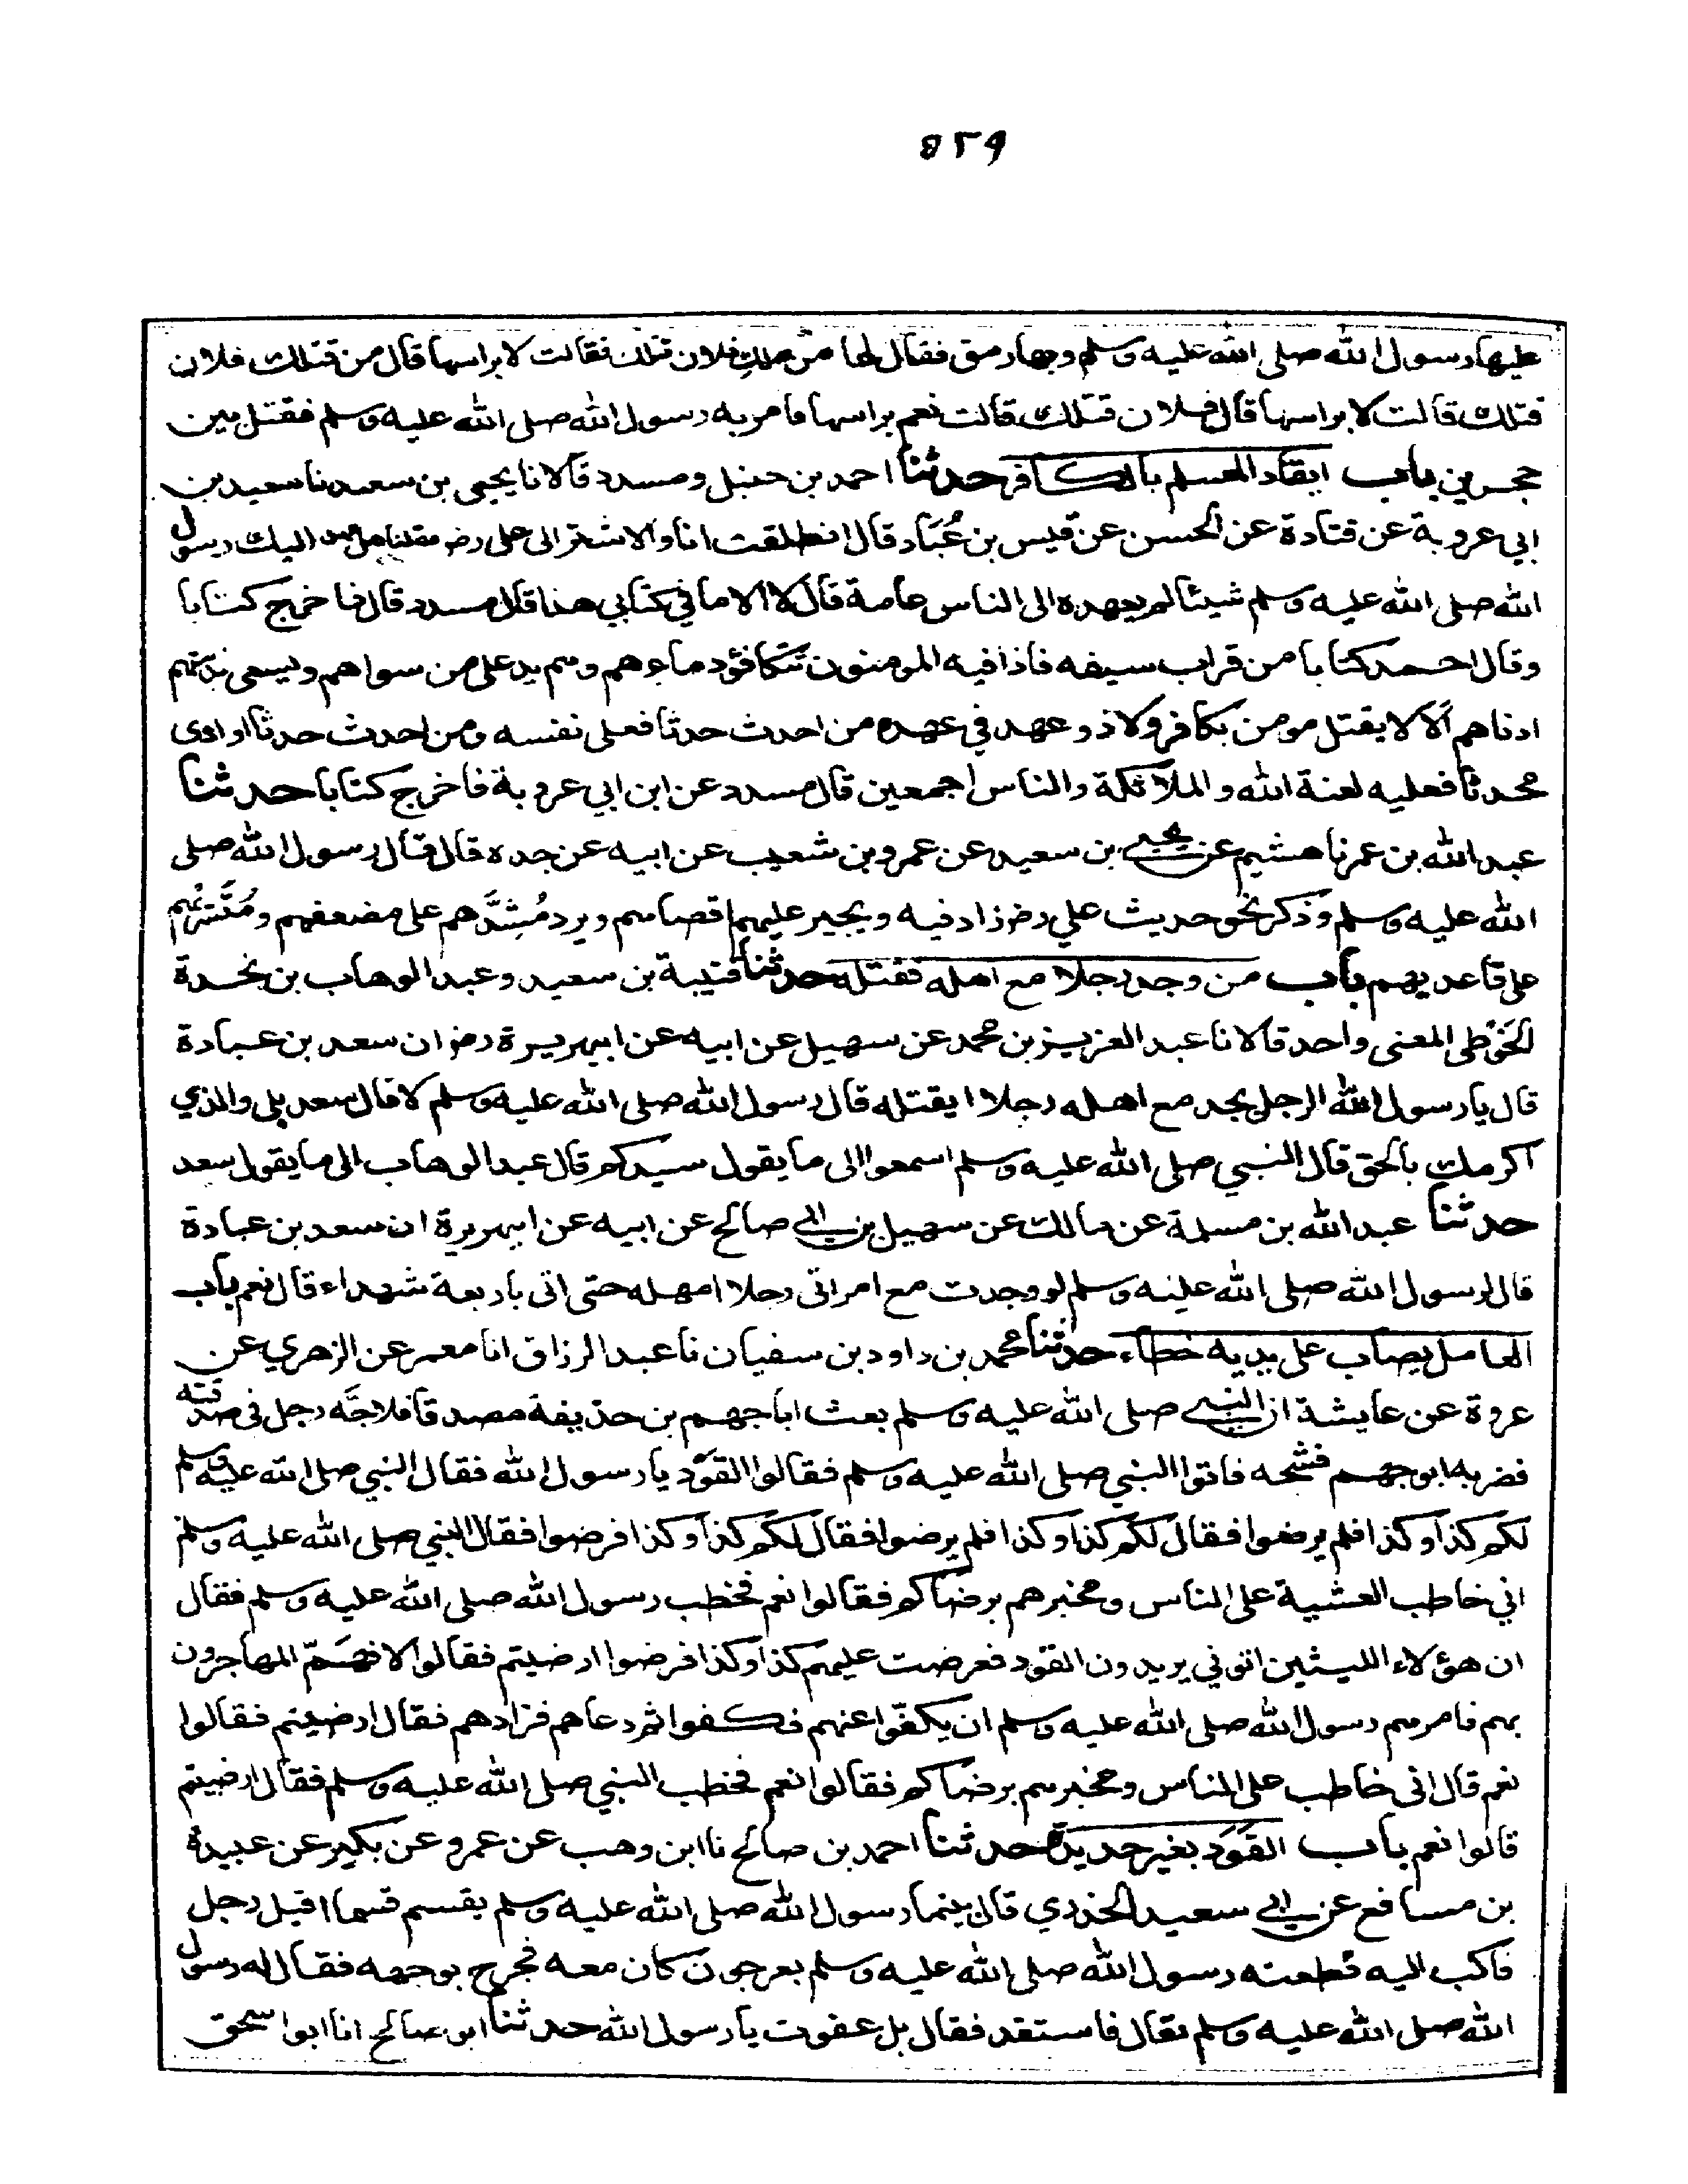 ٥٢٩
عليها رسول الله صلى الله عليه وسلم وبها رمق فقال لها من قتلك فلان قتلك فقالت لا براسها قال من قتلك فلان
قتلك قالت لا براسها قال فلان قتلك قالت نعم براسها فامر به رسول الله صلى الله عليه وسلم فقتل بين
حجرين باب ايقاد المسلم بالكافر حدثنا احمد بن حنبل ومسدد قالا نا يحيى بن سعيد نا سعيد بن
ابي عروبة عن قتادة عن الحسن عن قيس بن عُبَاد قال انطلقت انا والاشتر الى علي رضـ فقلنا هل عهد اليك رسول
الله صلى الله عليه وسلم شيئا لم يعهده الى الناس عامة قال لا الا ما في كتابي هذا قال مسدد قال فاخرج كتابا
وقال احمد كتابا من قراب سيفه فاذا فيه المومنون تتكافؤ دماءهم وهم يد على من سواهم ويسعى بذمتهم
ادناهم ألا لا يقتل مومن بكافر ولا ذو عهد في عهده من احدث حدثا فعلى نفسه ومن احدث حدثا او اوى
محدثا فعليه لعنة الله والملائكة والناس اجمعين قال مسدد عن ابن ابي عروبة فاخرج كتابا حدثنا
عبد الله بن عمر نا هشيم عن يحيى بن سعيد عن عمرو بن شعيب عن ابيه عن جده قال قال رسول الله صلى
الله عليه وسلم وذكر نحو حديث علي رضـ زاد فيه ويجير عليهم اقصاهم ويرد مُشِدَّهم على مضعفهم ومُتَسَرِّعُهم
على قاعديهم باب من وجد رجلا مع اهله فقتله حدثنا قتيبة بن سعيد وعبد الوهاب بن نجدة
الحَوْطى المعنى واحد قالا نا عبد العزيز بن محمد عن سهيل عن ابيه عن ابيهريرة رضـ ان سعد بن عبادة
قال يا رسول الله الرجل يجد مع اهله رجلا ايقتله قال رسول الله صلى الله عليه وسلم لا قال سعد بلى والذي
اكرمك بالحق قال النبي صلى الله عليه وسلم اسمعوا الى ما يقول سيدكم قال عبد الوهاب الى ما يقول سعد
حدثنا عبد الله بن مسلمة عن مالك عن سهيل بن ابي صالح عن ابيه عن ابيهريرة ان سعد بن عبادة
قال لرسول الله صلى الله عليه وسلم لو وجدت مع امراتى رجلا امهله حتى اتى باربعة شهداء قال نعم باب
العامل يصاب على يديه خطاء حدثنا محمد بن داود بن سفيان نا عبد الرزاق انا معمر عن الزهري عن
عروة عن عايشة ان النبي صلى الله عليه وسلم بعث ابا جهم بن حذيفة مصدقا فلاجَّه رجل في صدقته
فضربه ابو جهم فشجه فاتوا النبي صلى الله عليه وسلم فقالوا القوَد يا رسول الله فقال النبي صلى الله عليه وسلم
لكم كذا وكذا فلم يرضوا فقال لكم كذا وكذا فلم يرضوا فقال لكم كذا وكذا فرضوا فقال النبي صلى الله عليه وسلم
اني خاطب العشية على الناس ومخبرهم برضاكم فقالوا نعم فخطب رسول الله صلى الله عليه وسلم فقال
ان هؤلاء الليثيين اتوني يريدون القود فعرضت عليهم كذا وكذا فرضوا ارضيتم فقالوا لا فهَمَّ المهاجرون
بهم فامرهم رسول الله صلى الله عليه وسلم ان يكفّوا عنهم فكفوا ثم دعاهم فزادهم فقال ارضيتم فقالوا
نعم قال انى خاطب على الناس ومخبرهم برضاكم فقالوا نعم فخطب النبي صلى الله عليه وسلم فقال ارضيتم
قالوا نعم باب القَوَد بغير حديدة حدثنا احمد بن صالح نا ابن وهب عن عمرو عن بكير عن عبيدة
بن مسافع عن ابي سعيد الخدري قال بينما رسول الله صلى الله عليه وسلم يقسم قسما اقبل رجل
فاكب اليه فطعنه رسول الله صلى الله عليه وسلم بعرجون كان معه فجرح بوجهه فقال له رسول
الله صلى الله عليه وسلم تعال فاستقد فقال بل عفوت يا رسول الله حدثنا ابو صالح انا ابوا سحق